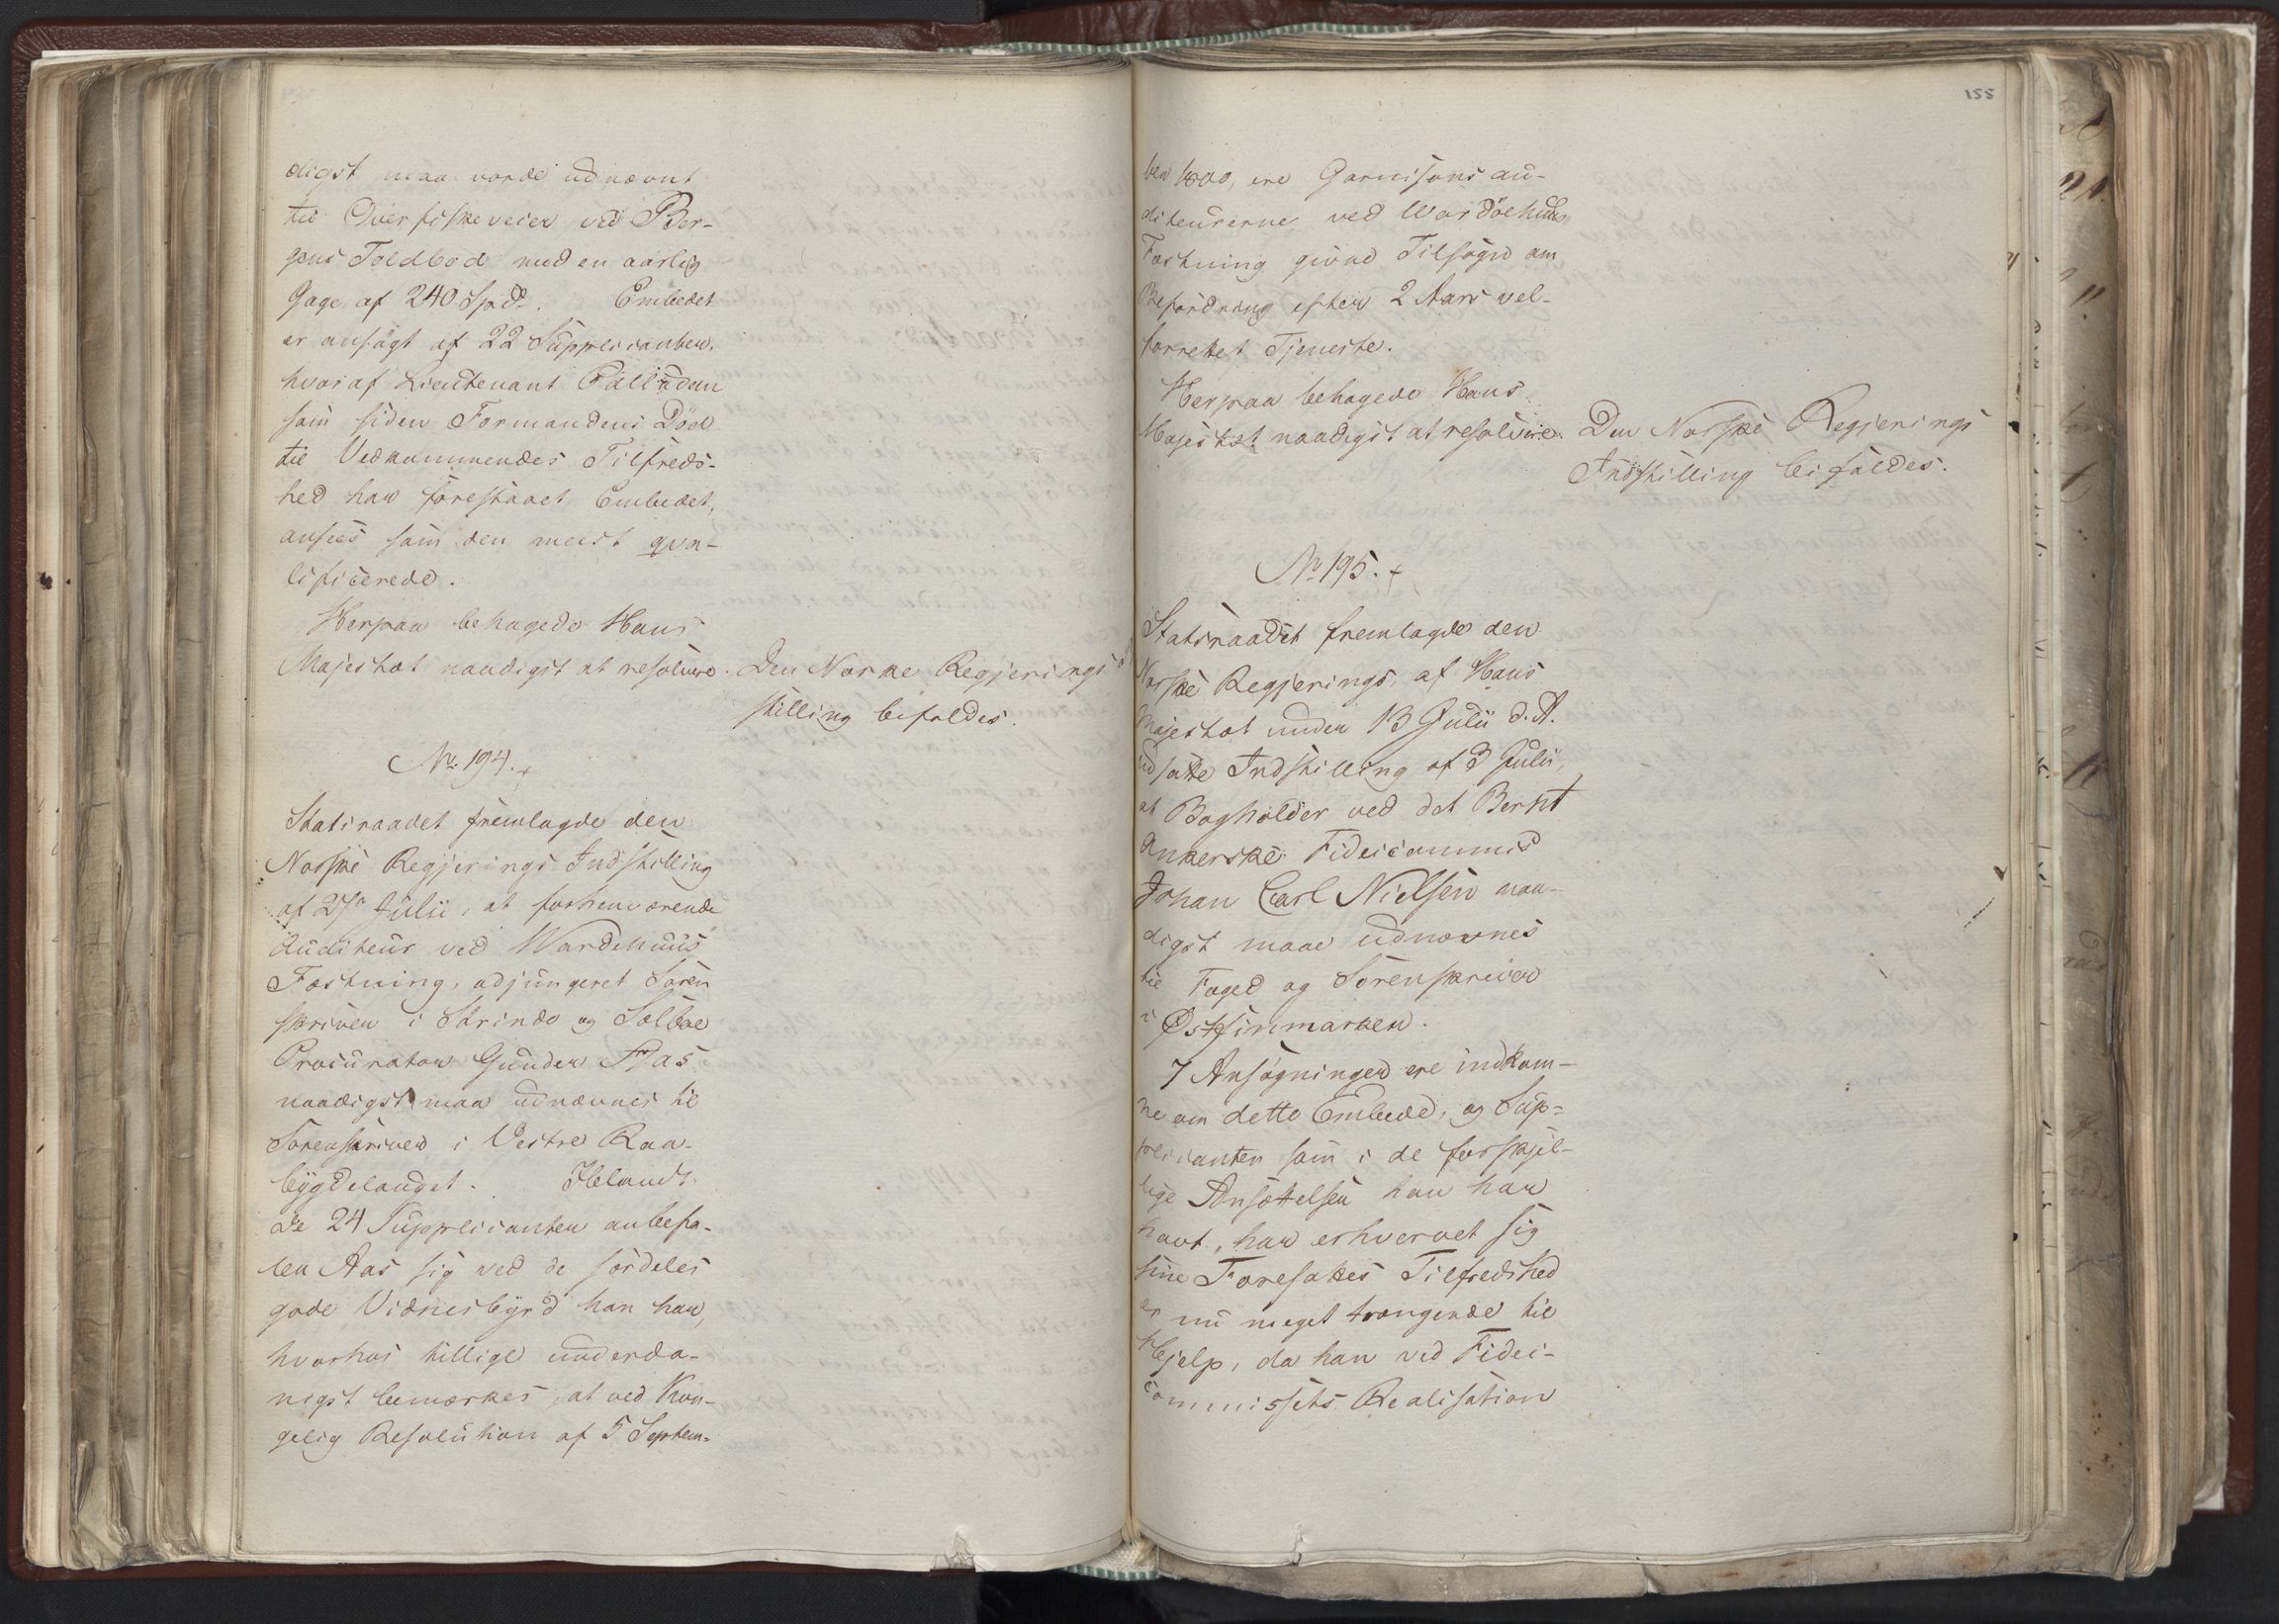 digst maa vorde udnævnt
til Overfiskeveier ved Ber-
gens Toldbod med en aarlig
Gage af 240 Spd. Embedet
er ansögt af 22 Supplicanter,
hvoraf Lieutenant Palludan
som siden Formandens Död
til Vedkommendes Tilfreds-
hed har forestaaet Embedet,
ansees som den meest qva-
lificerede.
Herpaa behagede Hans
Majestæt naadigst at resolvere. Den Norske Regjerings
stilling bifaldes.
No 194.
Statsraadet fremlagde den
Norske Regjerings Indstilling
af 27 Julii, at forhenværende
Auditeur ved Wardehuus
Fæstning, adjungeret Soren
skriver i Strinde og Selboe
Procurator Gunder Aas
naadigst maa udnævnes til
Sorenskriver i Vestre Raa-
bygdelauget. Iblandt
de 24 Supplicanter anbefa-
ler Aas sig ved de særdeles
gode Vidnesbyrd han har,
hvorhos tillige underda-
nigst bemærkes, at ved Kon-
gelig Resolution af 5 Septem-
155
ber 1800, ere Garnisons au-
diteurerne ved Wardöehuus
Fæstning givne Tilsagn om
Befordring efter 2 Aars vel-
forrettet Tjeneste.
Herpaa behagede Hans
Majestæt naadigst at resolvere. Den Norske Regjerings
Indstilling bifaldes.
No 195.
Statsraadet fremlagde den
Norske Regjerings, af Hans
Majestæt under 13 Julii d. A.
udsatte Indstilling af 3 Julii,
at Bogholder ved det Bernt
Ankerske Fideicommis
Johan Carl Nielsen naa-
digst maae udnævnes
til Foged og Sorenskriver
i Østfinmarken.
7 Ansøgninger ere indkom-
ne om dette Embede, og Sup-
plicanten som i de forskjel-
lige Ansættelser han har
havt, har erhvervet sig
sine Foresattes Tilfredshed
er nu meget trængende til
Hjelp, da han ved Fidei-
commissets Realisation